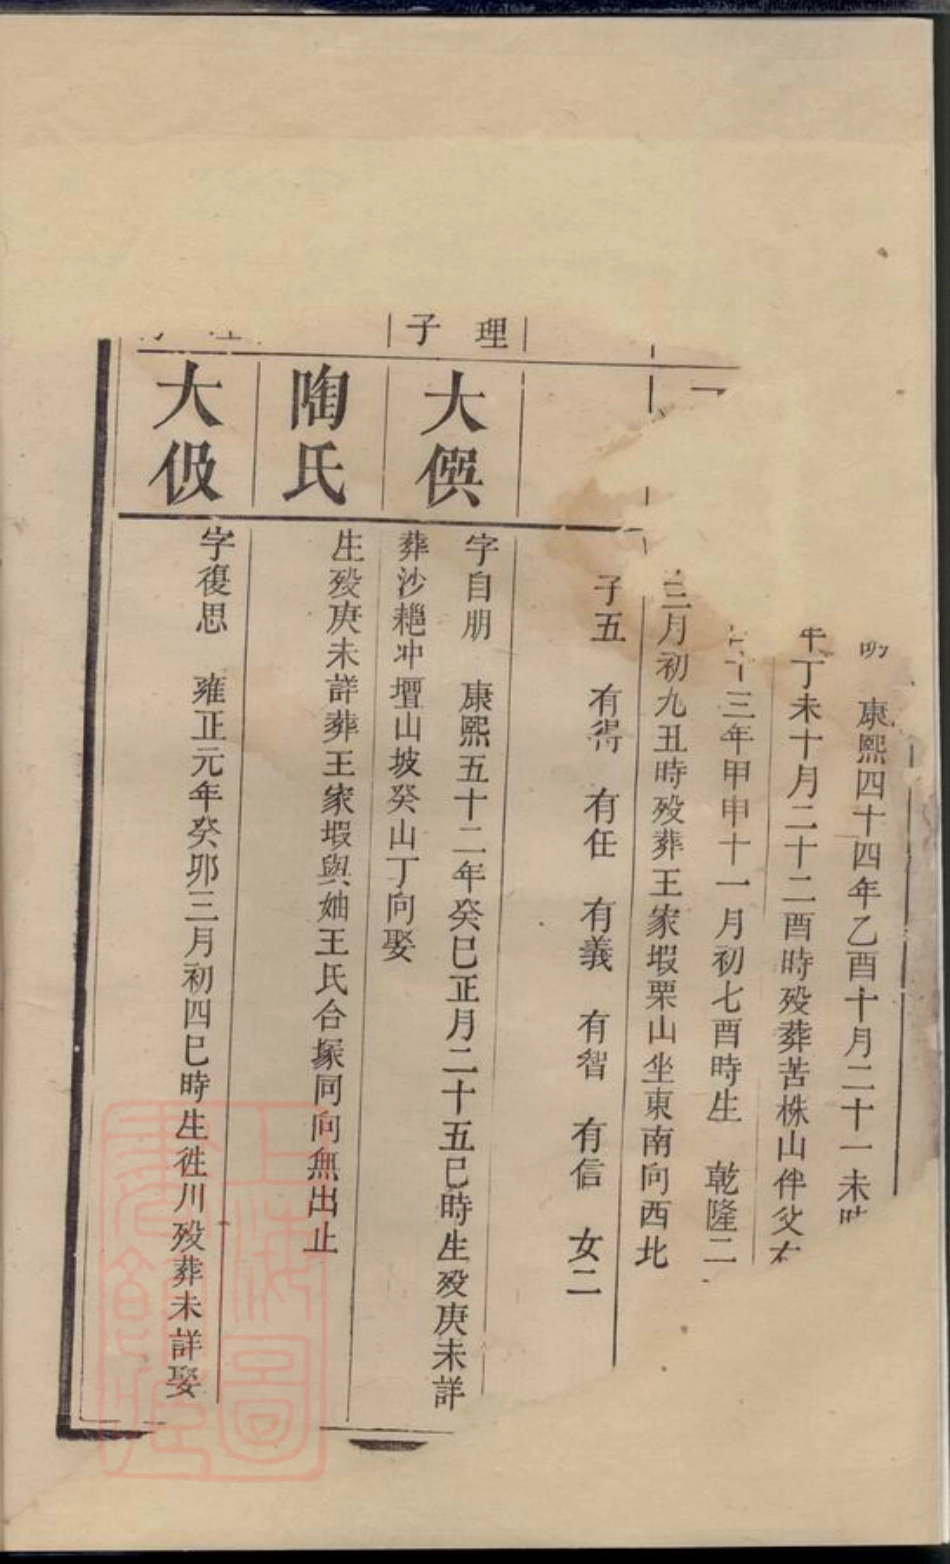 康熙四十四年乙酉十月二十一未時
年丁未十月二十二酉時殁葬苦株山伴父右
十三年甲申十一月初七酉時生 乾隆二
三月初九丑時殁葬王家塅栗山坐東南向西北
子五 有得 有任 有義 有智 有信 女二
理子
大僎
字自朋 康熙五十二年癸巳正月二十五巳時生殁庚未詳
葬沙耙冲壇山坡癸山丁向娶
陶氏
生殁庚未詳葬王家塅與妯王氏合塚同向無出止
大伋
字復思 雍正元年癸卯三月初四巳時生徃川殁葬未詳娶
上海圖書館藏